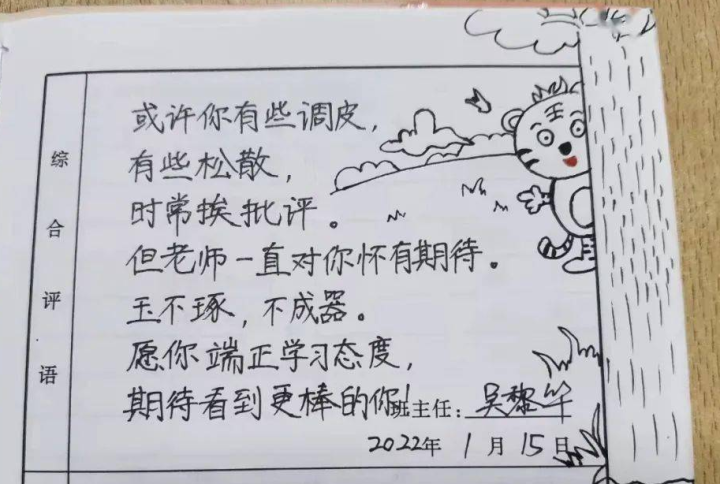 综合评语
或许你有些调皮，
有些松散，
时常挨批评。
但老师一直对你怀有期待。
玉不琢，不成器。
愿你端正学习态度，
期待看到更棒的你！班主任：吴黎
2022年 1月 15日